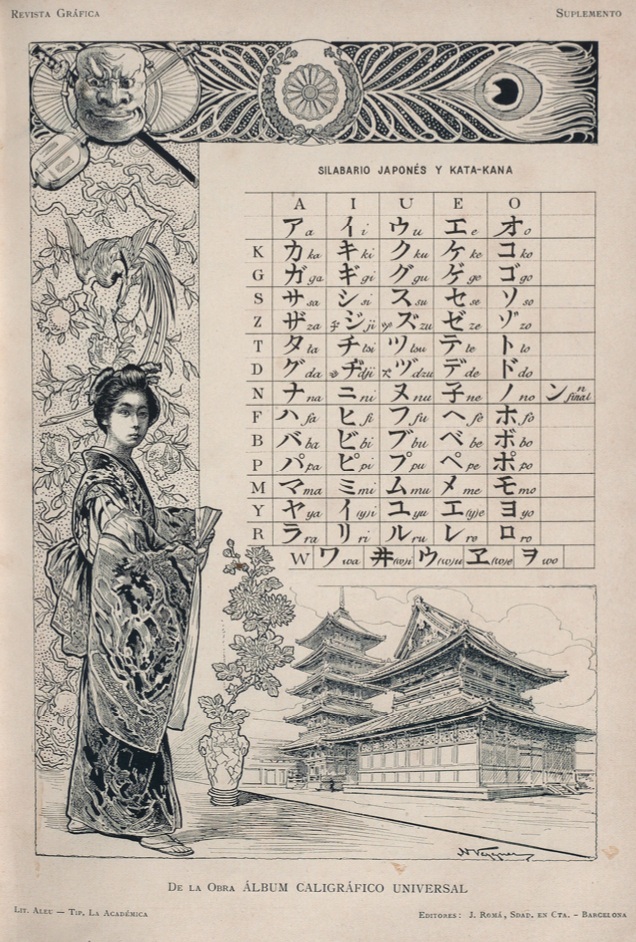 REVISTA GRÁFICA
SUPLEMENTO
SILABARIO JAPONÉS Y KATA-KANA
A I U E O
ア a イ i ウ u エ e オ o
K カ ka キ ki ク ku ケ ke コ ko
G ガ ga ギ gi グ gu ゲ ge ゴ go
S サ sa シ si ス su セ se ソ so
Z ザ za ヂ ジ ji ヅ ズ zu ゼ ze ゾ zo
T タ ta チ tsi ツ tsu テ te ト to
D グ da ヂ dji ヅ dzu デ de ド do
N ナ na ニ ni ヌ nu 子 ne ノ no ン n final
F ハ fa ヒ fi フ fu ヘ fe ホ fo
B バ ba ビ bi ブ bu ベ be ボ bo
P パ pa ピ pi プ pu ペ pe ポ po
M マ ma ミ mi ム mu メ me モ mo
Y ヤ ya イ (y)i ユ yu エ (y)e ヨ yo
R ラ ra リ ri ル ru レ re ロ ro
W ワ wa 井 (w)i ウ (w)u ヱ (w)e ヲ wo
DE LA OBRA ÁLBUM CALIGRÁFICO UNIVERSAL
LIT. ALEU — TIP. LA ACADÉMICA
EDITORES: J. ROMÁ, SDAD. EN CTA. - BARCELONA